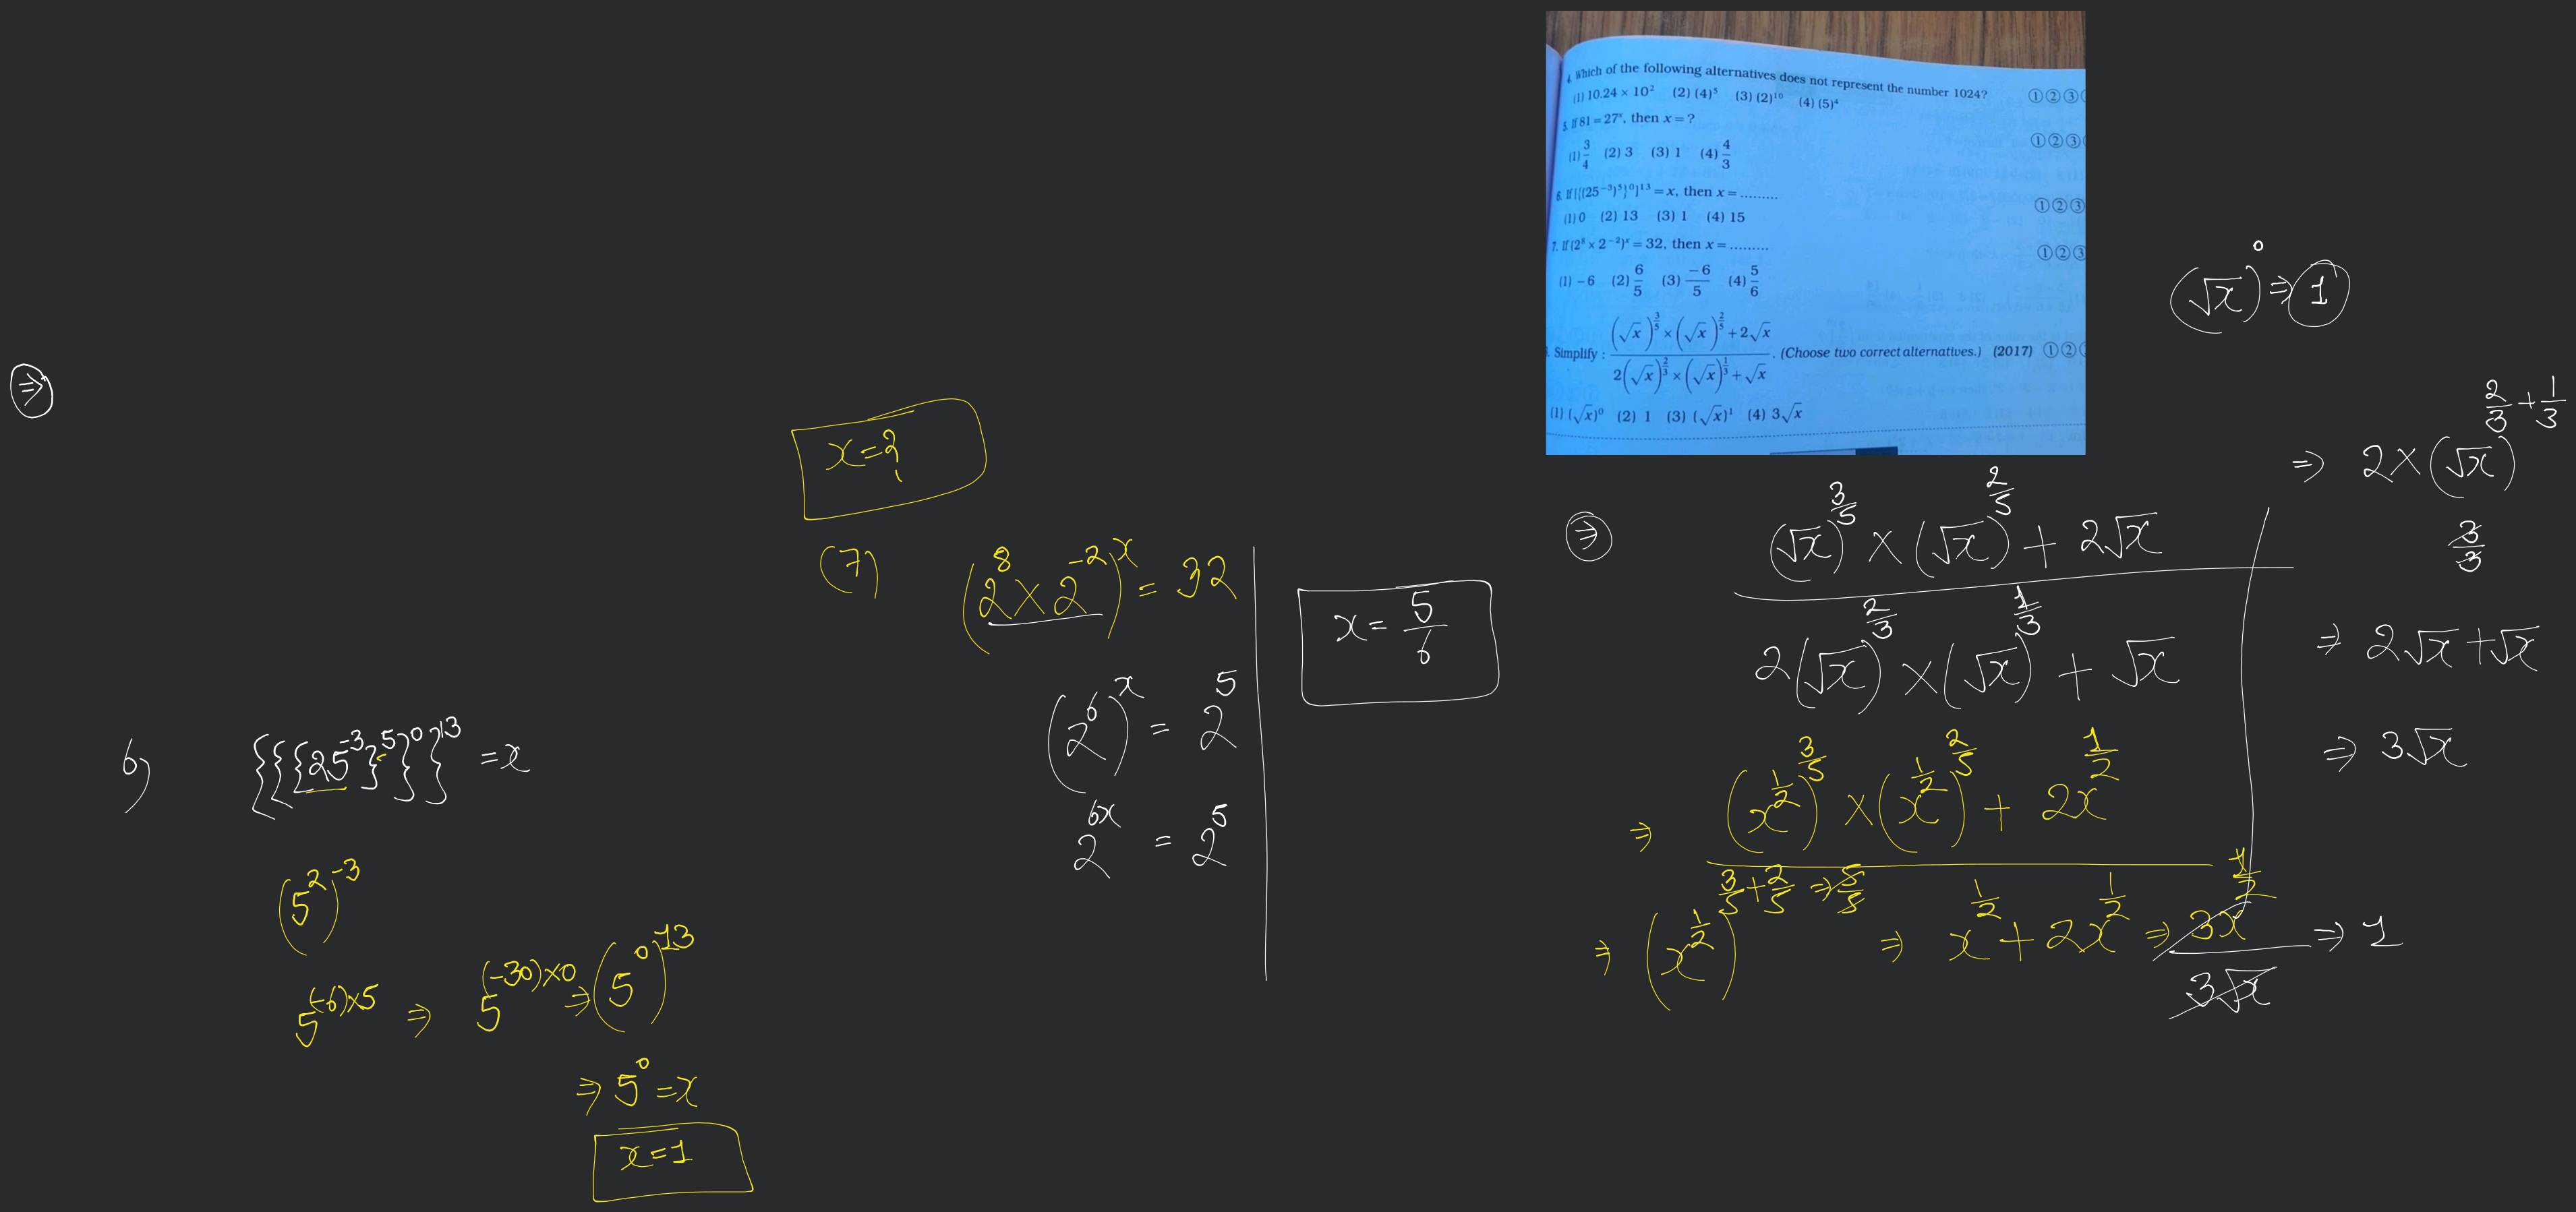 4. Which of the following alternatives does not represent the number 1024? ① ② ③
(1) 10.24 × 10² (2) (4)⁵ (3) (2)¹⁰ (4) (5)⁴
5. If 81 = 27ˣ, then x = ? ① ② ③
(1) 3/4 (2) 3 (3) 1 (4) 4/3
6. If [{(25⁻³)⁵}⁰]¹³ = x, then x = ......... ① ② ③
(1) 0 (2) 13 (3) 1 (4) 15
7. If (2⁸ × 2⁻²)ˣ = 32, then x = ......... ① ② ③
(1) – 6 (2) 6/5 (3) –6/5 (4) 5/6
(√x)^(3/5) × (√x)^(2/5) + 2√x
Simplify : ―――. (Choose two correct alternatives.) (2017) ① ②
2(√x)^(2/3) × (√x)^(1/3) + √x
(1) (√x)⁰ (2) 1 (3) (√x)¹ (4) 3√x
(√x)⁰ ⇒ 1
⇒
x = ?
(7) (2⁸ × 2⁻²)ˣ = 32
(2⁶)ˣ = 2⁵
2⁶ˣ = 2⁵
x = 5/6
6) {{{25⁻³}⁵}⁰}¹³ = x
(5²)⁻³
5^((-6)×5) ⇒ 5^((-30)×0) ⇒ (5⁰)¹³
⇒ 5⁰ = x
x = 1
⇒ (√x)^(3/5) × (√x)^(2/5) + 2√x
2(√x)^(2/3) × (√x)^(1/3) + √x
⇒ (x^(1/2))^(3/5) × (x^(1/2))^(2/5) + 2x^(1/2)
⇒ (x^(1/2))^(3/5 + 2/5 ⇒ 5/5) ⇒ x^(1/2) + 2x^(1/2) ⇒ 3x^(1/2) / 3√x ⇒ 1
⇒ 2 × (√x)^(2/3 + 1/3)
3/3
⇒ 2√x + √x
⇒ 3√x